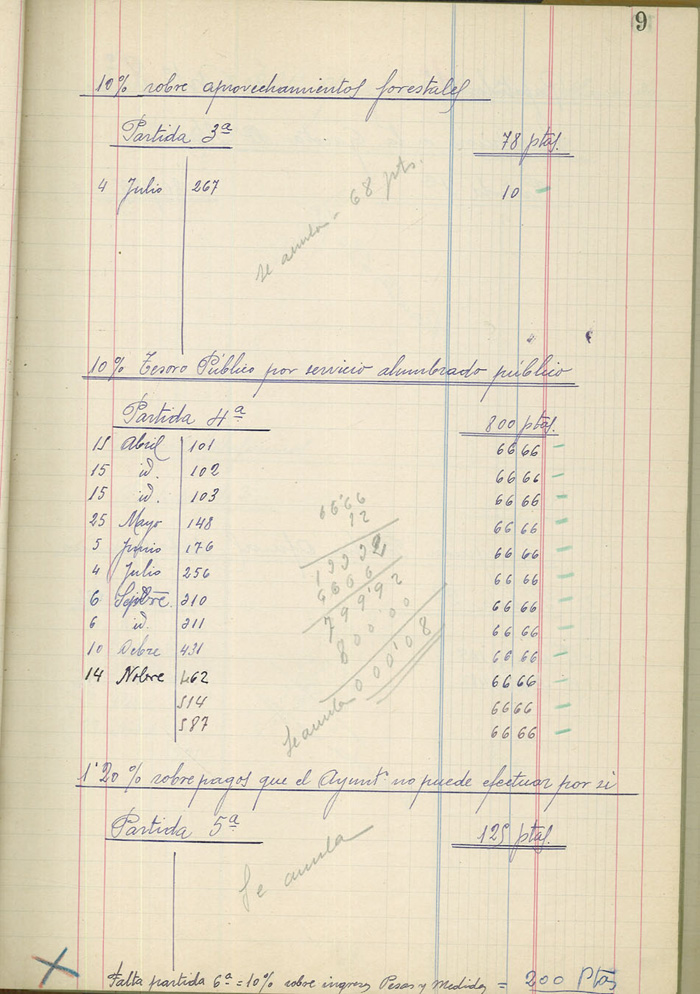 9
10% sobre aprovechamientos forestales
Partida 3ª 78 ptas.
4 Julio 267 10 -
se anula - 68 pts.
10% Tesoro Público por servicio alumbrado público
Partida 4ª 800 ptas.
15 Abril 101 66 66 -
15 id. 102 66 66 -
15 id. 103 66 66 -
25 Mayo 148 66 66 -
5 Junio 176 66 66 -
4 Julio 256 66 66 -
6 Septbre. 310 66 66 -
6 id. 311 66 66 -
10 Octbre 431 66 66 -
14 Nobre 462 66 66 -
514 66 66 -
587 66 66 -
66'66
12
13332
6666
799'92
800'00
Se anula 000'08
1'20% sobre pagos que el Ayuntº no puede efectuar por si
Partida 5ª 125 ptas.
Se anula
Falta partida 6ª = 10% sobre ingresos Pesas y Medidas = 200 Ptas